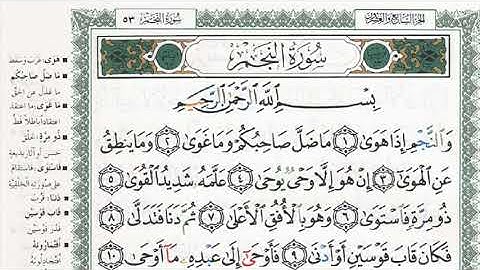 سُورَةُ النَّجْمِ ٥٣
الجزء السابع والعشرون
سُورَةُ النَّجْمِ
بِسْمِ اللَّهِ الرَّحْمَٰنِ الرَّحِيمِ
وَالنَّجْمِ إِذَا هَوَىٰ ١ مَا ضَلَّ صَاحِبُكُمْ وَمَا غَوَىٰ ٢ وَمَا يَنطِقُ
عَنِ الْهَوَىٰ ٣ إِنْ هُوَ إِلَّا وَحْيٌ يُوحَىٰ ٤ عَلَّمَهُ شَدِيدُ الْقُوَىٰ ٥
ذُو مِرَّةٍ فَاسْتَوَىٰ ٦ وَهُوَ بِالْأُفُقِ الْأَعْلَىٰ ٧ ثُمَّ دَنَا فَتَدَلَّىٰ ٨
فَكَانَ قَابَ قَوْسَيْنِ أَوْ أَدْنَىٰ ٩ فَأَوْحَىٰ إِلَىٰ عَبْدِهِ مَا أَوْحَىٰ ١٠
هَوَى: غرب وسقط
مَا ضَلَّ صَاحِبُكُمْ
مَا غَوَى: ما اعتقد
ذُو مِرَّةٍ:
فَاسْتَوَى: فاستقام
قَابَ قَوْسَيْنِ
أَفَتُمَارُونَهُ